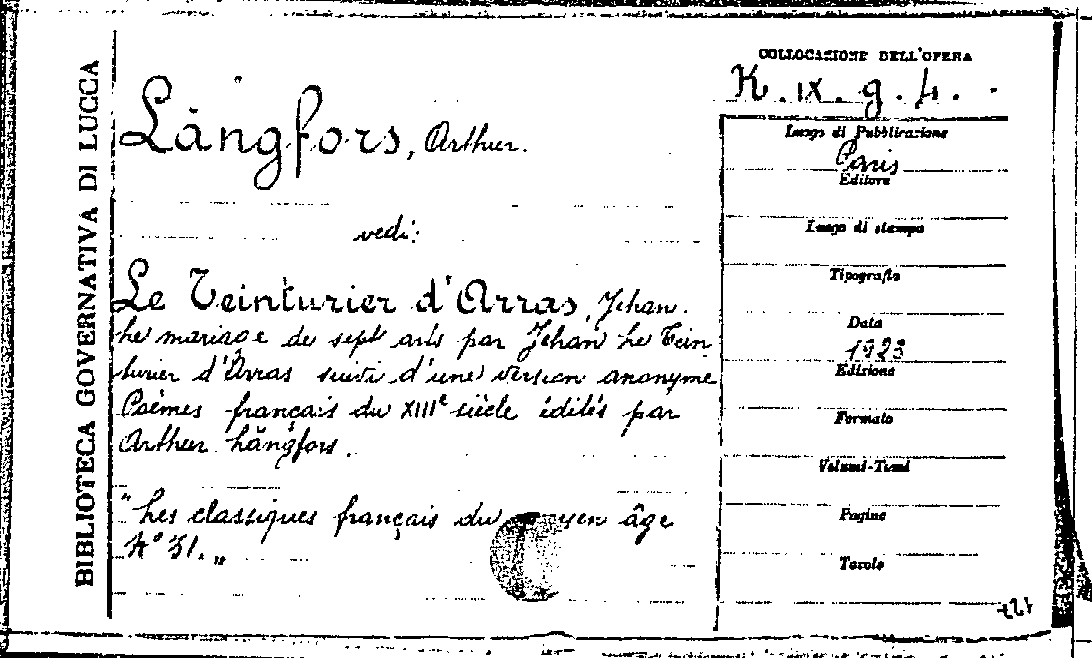 BIBLIOTECA GOVERNATIVA DI LUCCA
Långfors, Arthur.
vedi:
Le Teinturier d'Arras, Jehan.
Le mariage des sept arts par Jehan Le Tein
turier d'Arras suivi d'une version anonyme
Poèmes français du XIIIe siècle édités par
Arthur Långfors.
"Les classiques français du moyen âge
N° 31."
COLLOCAZIONE DELL'OPERA
K. IX. g. 4.
Luogo di Pubblicazione
Paris
Editore
Luogo di stampa
Tipografia
Data
1923
Edizione
Formato
Volumi-Tomi
Pagine
Tavole